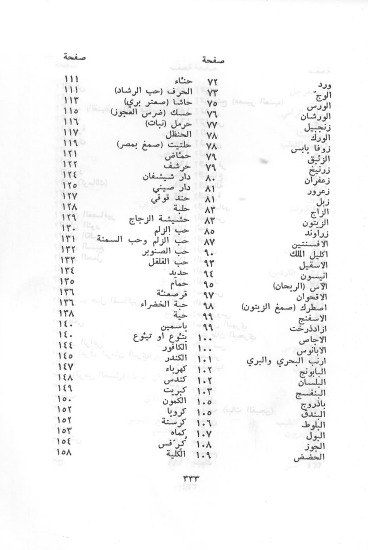 صفحة
ورد ٧٢
الوجّ ٧٣
الورس ٧٥
الورشان ٧٦
زنجبيل ٧٧
الورك ٧٨
زوفا يابس ٧٨
الزئبق ٧٩
زرنيخ ٧٩
زعفران ٨٠
زعرور ٨١
زبل ٨١
الزاج ٨٣
الزيتون ٨٣
زراوند ٨٥
الافسنتين ٨٧
اكليل الملك ٩٠
الاسقيل ٩٣
انيسون ٩٤
الآس (الريحان) ٩٥
الاقحوان ٩٧
اصطرك (صمغ الزيتون) ٩٨
الاسفنج ٩٩
ازادذرخت ٩٩
الاجاص ١٠٠
الابانوس ١٠٠
ارنب البحري والبري ١٠١
البابونج ١٠٢
البلسان ١٠٢
البنفسج ١٠٣
باذروج ١٠٥
البندق ١٠٥
البلوط ١٠٦
البول ١٠٧
الجوز ١٠٨
الحضض ١٠٩
صفحة
حنّاء ١١١
الحرف (حب الرشاد) ١١١
حاشا (صعتر بري) ١١٣
حسك (ضرس العجوز) ١١٥
حرمل (نبات) ١١٦
الحنظل ١١٧
حلتيت (صمغ بمصر) ١١٩
حمّاض ١٢١
حرشف ١٢٢
دار شيشغان ١٢٤
دار صيني ١٢٥
حند قوقي ١٢٧
حلبة ١٢٨
حشيشة الزجاج ١٢٩
حب الزلم ١٣٠
حب الزلم وحب السمنة ١٣١
حب الصنوبر ١٣٢
حب القلقل ١٣٣
حديد ١٣٤
حمام ١٣٥
قرصعنّة ١٣٦
حبة الخضراء ١٣٦
حيّة ١٣٨
ياسمين ١٤٠
يتوع او تيّوع ١٤٠
الكافور ١٤٤
الكندر ١٤٥
كهرباء ١٤٧
كندس ١٤٨
كبريت ١٤٩
الكمون ١٥٠
كرويا ١٥٢
كرسنة ١٥٢
كماه ١٥٣
كرفس ١٥٤
الكلية ١٥٨
٣٣٣